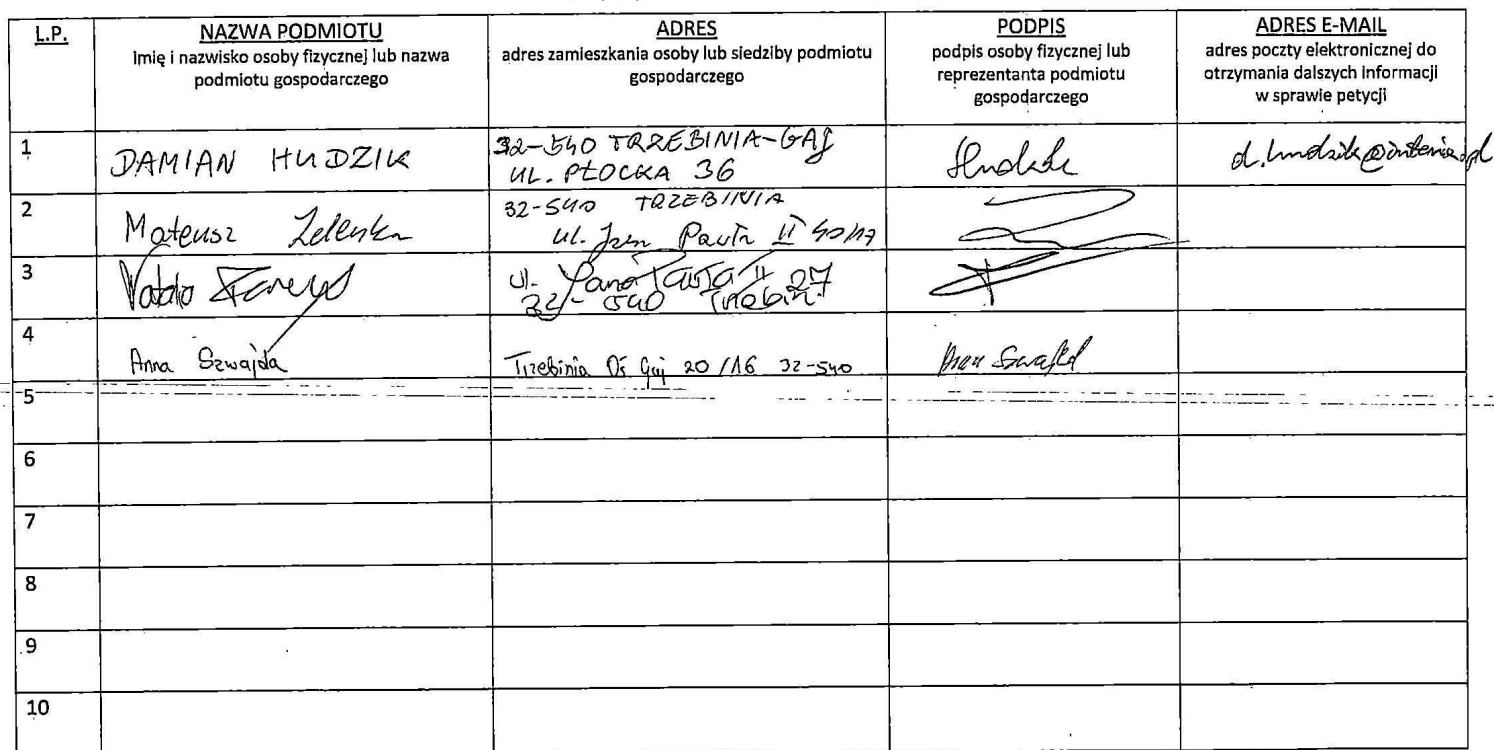 L.P.
NAZWA PODMIOTU
imię i nazwisko osoby fizycznej lub nazwa
podmiotu gospodarczego
ADRES
adres zamieszkania osoby lub siedziby podmiotu
gospodarczego
PODPIS
podpis osoby fizycznej lub
reprezentanta podmiotu
gospodarczego
ADRES E-MAIL
adres poczty elektronicznej do
otrzymania dalszych informacji
w sprawie petycji
1
DAMIAN HUDZIK
32-540 TRZEBINIA-GAJ
UL. PŁOCKA 36
d.hudzik@interia.pl
2
Mateusz
32-540 TRZEBINIA
ul. Jana Pawła II 40/17
3
ul. Jana Pawła II 27
32-540
4
Anna Szwajda
Trzebinia Oś Gaj 20/16 32-540
Anna Szwajda
5
6
7
8
9
10